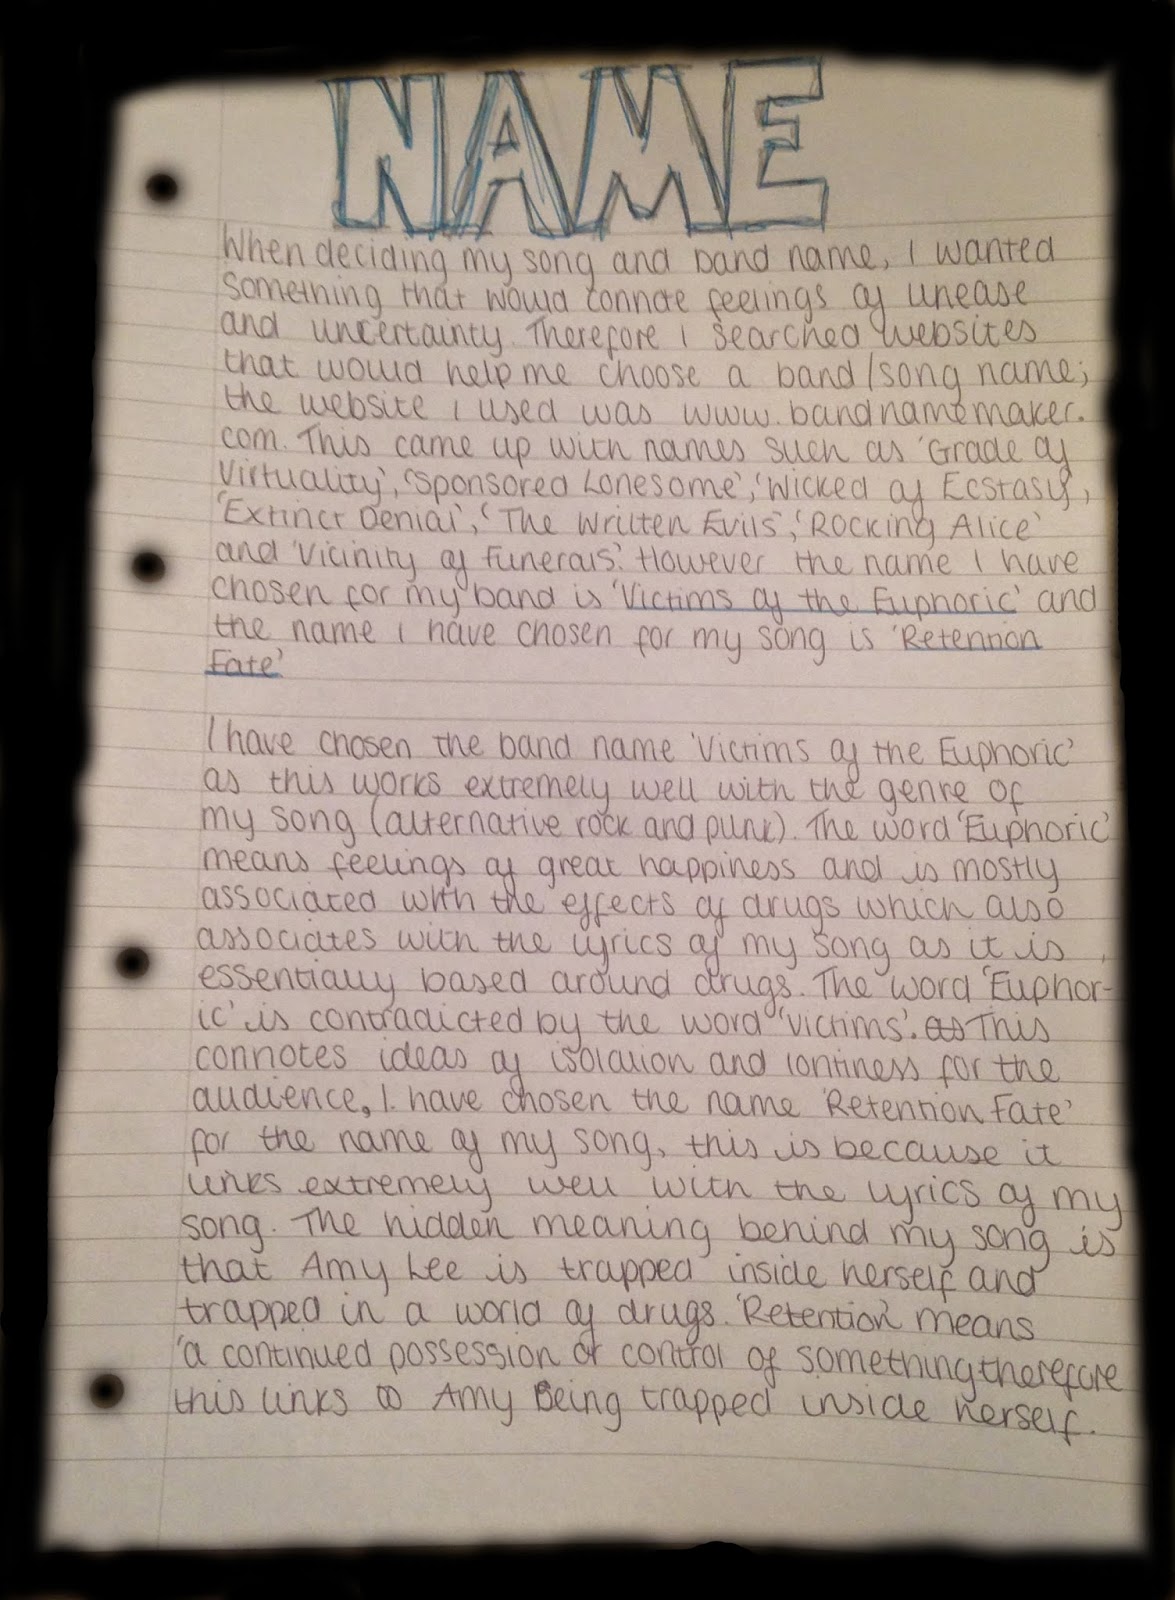 NAME
When deciding my song and band name, I wanted
something that would connote feelings of unease
and uncertainty. Therefore I searched websites
that would help me choose a band/song name;
the website I used was www.bandnamemaker.
com. This came up with names such as 'Grade of
Virtuality', 'Sponsored Lonesome', 'Wicked of Ecstasy',
'Extinct Denial', 'The Written Evils', 'Rocking Alice'
and 'Vicinity of Funerals'. However the name I have
chosen for my band is 'Victims of the Euphoric' and
the name I have chosen for my song is 'Retention
Fate'
I have chosen the band name 'Victims of the Euphoric'
as this works extremely well with the genre of
my song (alternative rock and punk). The word 'Euphoric'
means feelings of great happiness and is mostly
associated with the effects of drugs which also
associates with the lyrics of my song as it is
essentially based around drugs. The word 'Euphor-
ic' is contradicted by the word 'victims'. as This
connotes ideas of isolation and lonliness for the
audience. I have chosen the name 'Retention Fate'
for the name of my song, this is because it
links extremely well with the lyrics of my
song. The hidden meaning behind my song is
that Amy Lee is trapped inside herself and
trapped in a world of drugs. 'Retention' means
'a continued possession or control of something therefore
this links to Amy Being trapped inside herself.